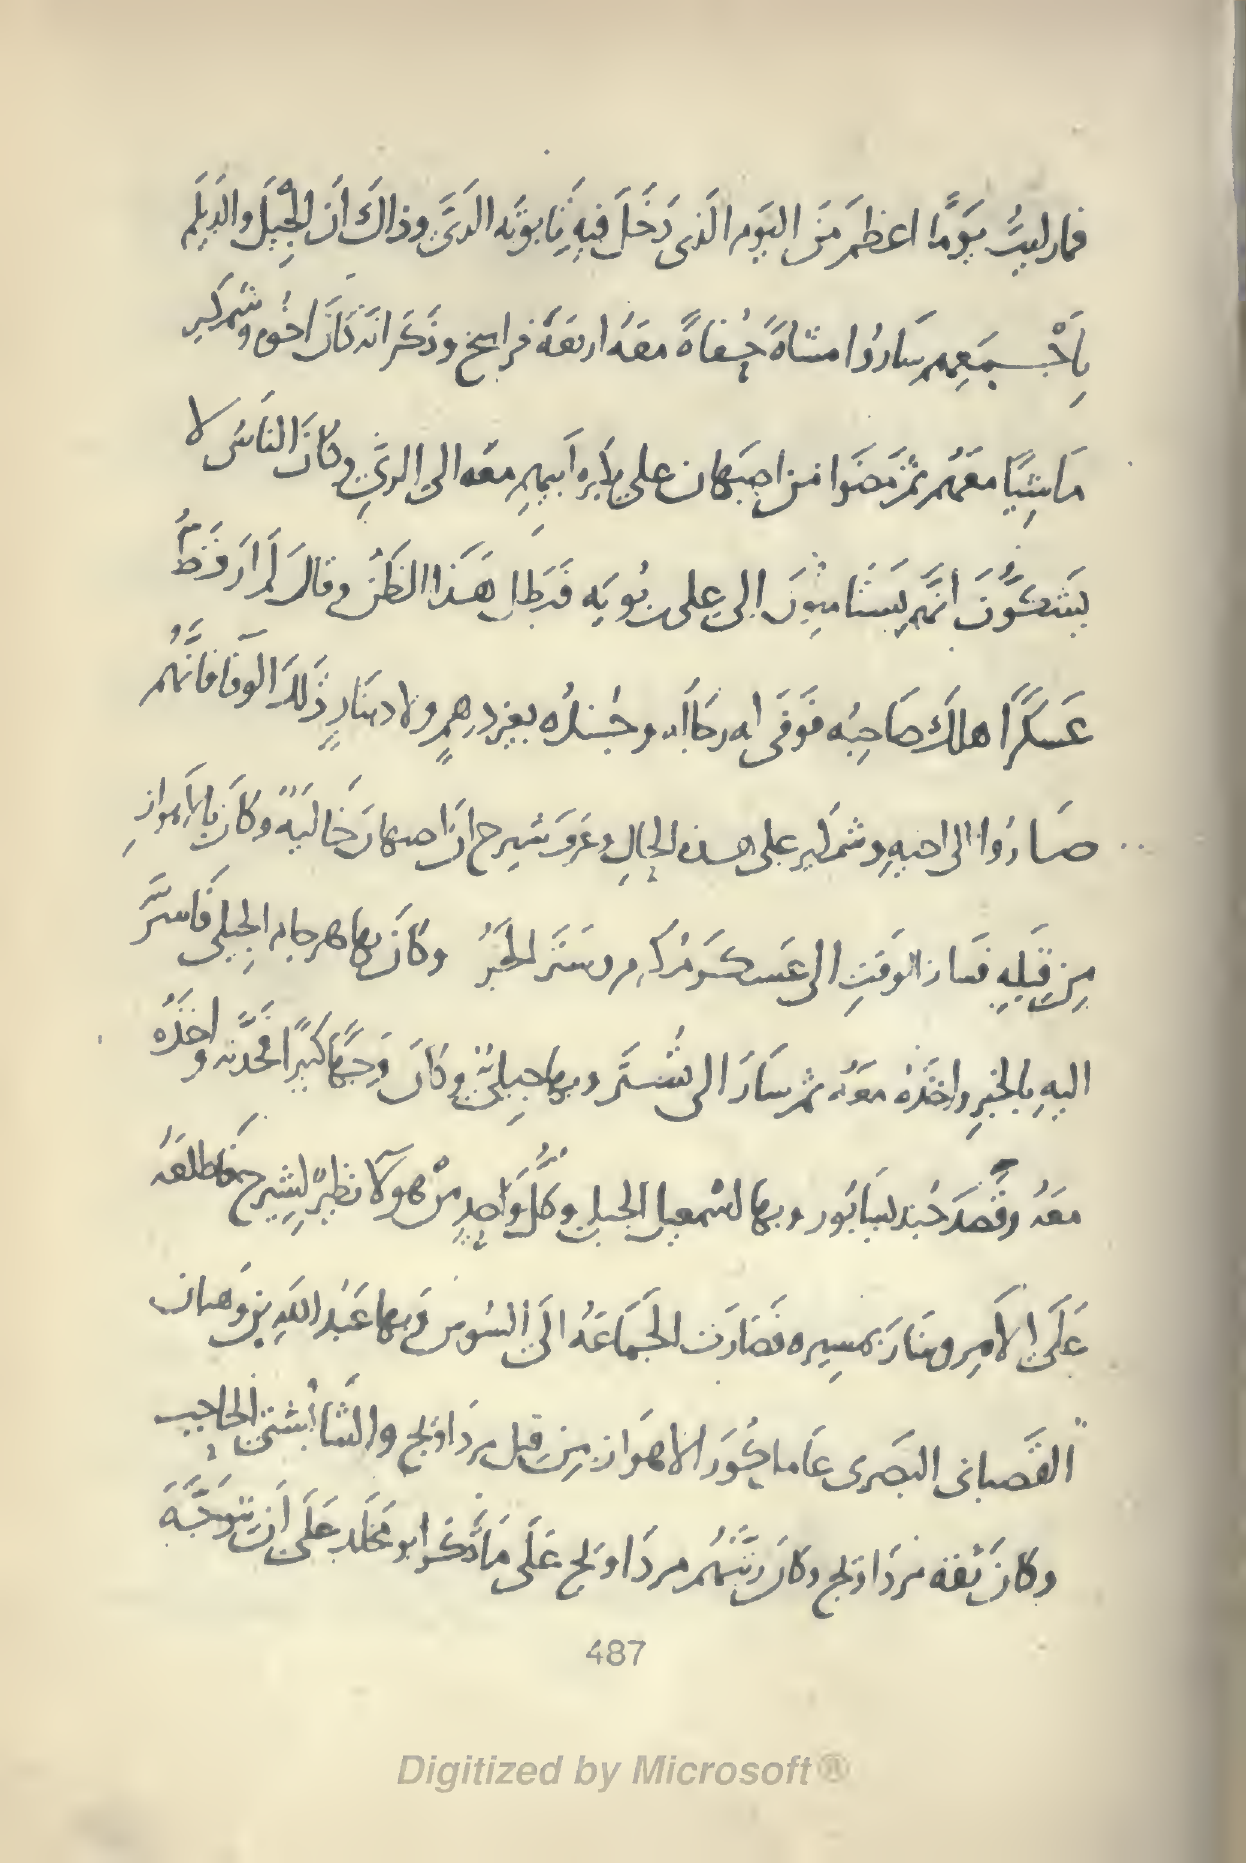 فما رايتُ يَومًا اعظمَ مَن اليَوم الَّذى دَخَلَ فيهِ بتابوته الرَىَّ وذاكَ اَن الجِيلَ والدَيلَم
بِاَجْمَعِهم سَارُوا مشاةً حُفاةً معَهُ اربَعَة فراسخ وذَكرَ انه كَانَ اخوُه وشَمكير
مَاشِيًا معَهُم ثم مَضَوا من اصبَهان على معَه الى الرىَّ وكانَ النَاسُ لا
يَشكُوّنَ انهَّم يَستَامِنُونَ الى على بن بُويَه فَبَطل هَذا الظَنُّ وقالَ لَم ارَ قَطُ
عَسكرًا هلكَ صَاحِبُه فَوَفَى له رجَالُه وجُندُه بغير درهمٍ ولا دينَارٍ ذَلكَ الوَفَا فانَّهُم
صَارُوا الى اخيهِ وشمكير على هذه الحالِ وعَرَفَ شيرح انَ اصبهانَ خَاليَةً وكانَ بالاَهوازِ
مِن قِبَلِهِ فسَارَ الوَقتِ الى عَسكر مُكرم وسَتَر الخبَرُ وكانَ بها الجِيلى فَاسَرَّ
اليهِ بالخبرِ واخَذَهُ معَهُ ثم سَارَ الى تُسْتَر وبها وكانَ وَجهًا كبيرًا فحَدَّثه واخَذَهُ
معَهُ وقَصَدَ جُنديسَابُور وبها اسمعيل الجيلى وكلُّ وَاحِدٍ مِنْ هوَلآ نظيرٌ لِشِيرح فاطلعَهُ
عَلَى الاَمرِ وسَارَ بمسِيره فصَارَت الجَمَاعَةُ الى السُوس وَبها عَبدُ اللَهِ بن وَهبان
القَصبانى البَصرى عَاملا كُوَر الاهوَاز مِن قِبل مردَاوَيج والشَابُشتى الحاجِب
وكانَ ثقة مردَاوَيج وكانَ رَسمُهُم مردَاوَيج عَلَى مَا ذَكرَ ابو مَخلَد عَلَى اَن يتَوجَّهَ
487
Digitized by Microsoft®